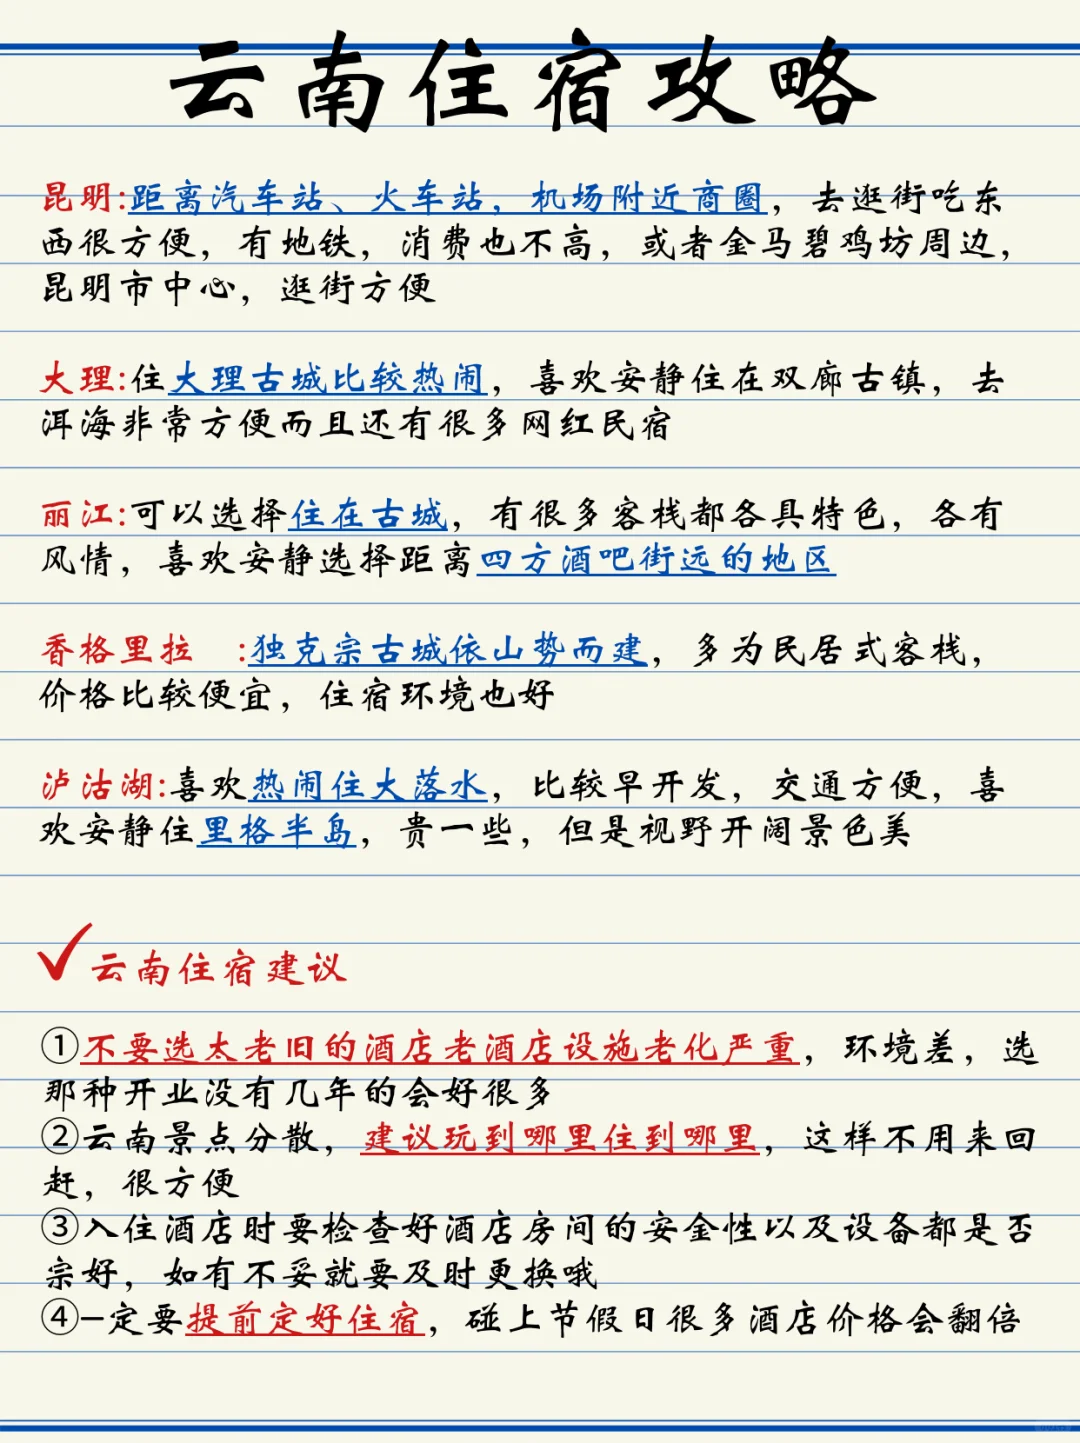 云南住宿攻略
昆明:距离汽车站、火车站，机场附近商圈，去逛街吃东
西很方便，有地铁，消费也不高，或者金马碧鸡坊周边，
昆明市中心，逛街方便
大理:住大理古城比较热闹，喜欢安静住在双廊古镇，去
洱海非常方便而且还有很多网红民宿
丽江:可以选择住在古城，有很多客栈都各具特色，各有
风情，喜欢安静选择距离四方酒吧街远的地区
香格里拉 :独克宗古城依山势而建，多为民居式客栈，
价格比较便宜，住宿环境也好
泸沽湖:喜欢热闹住大落水，比较早开发，交通方便，喜
欢安静住里格半岛，贵一些，但是视野开阔景色美
✓云南住宿建议
①不要选太老旧的酒店老酒店设施老化严重，环境差，选
那种开业没有几年的会好很多
②云南景点分散，建议玩到哪里住到哪里，这样不用来回
赶，很方便
③入住酒店时要检查好酒店房间的安全性以及设备都是否
宗好，如有不妥就要及时更换哦
④一定要提前定好住宿，碰上节假日很多酒店价格会翻倍